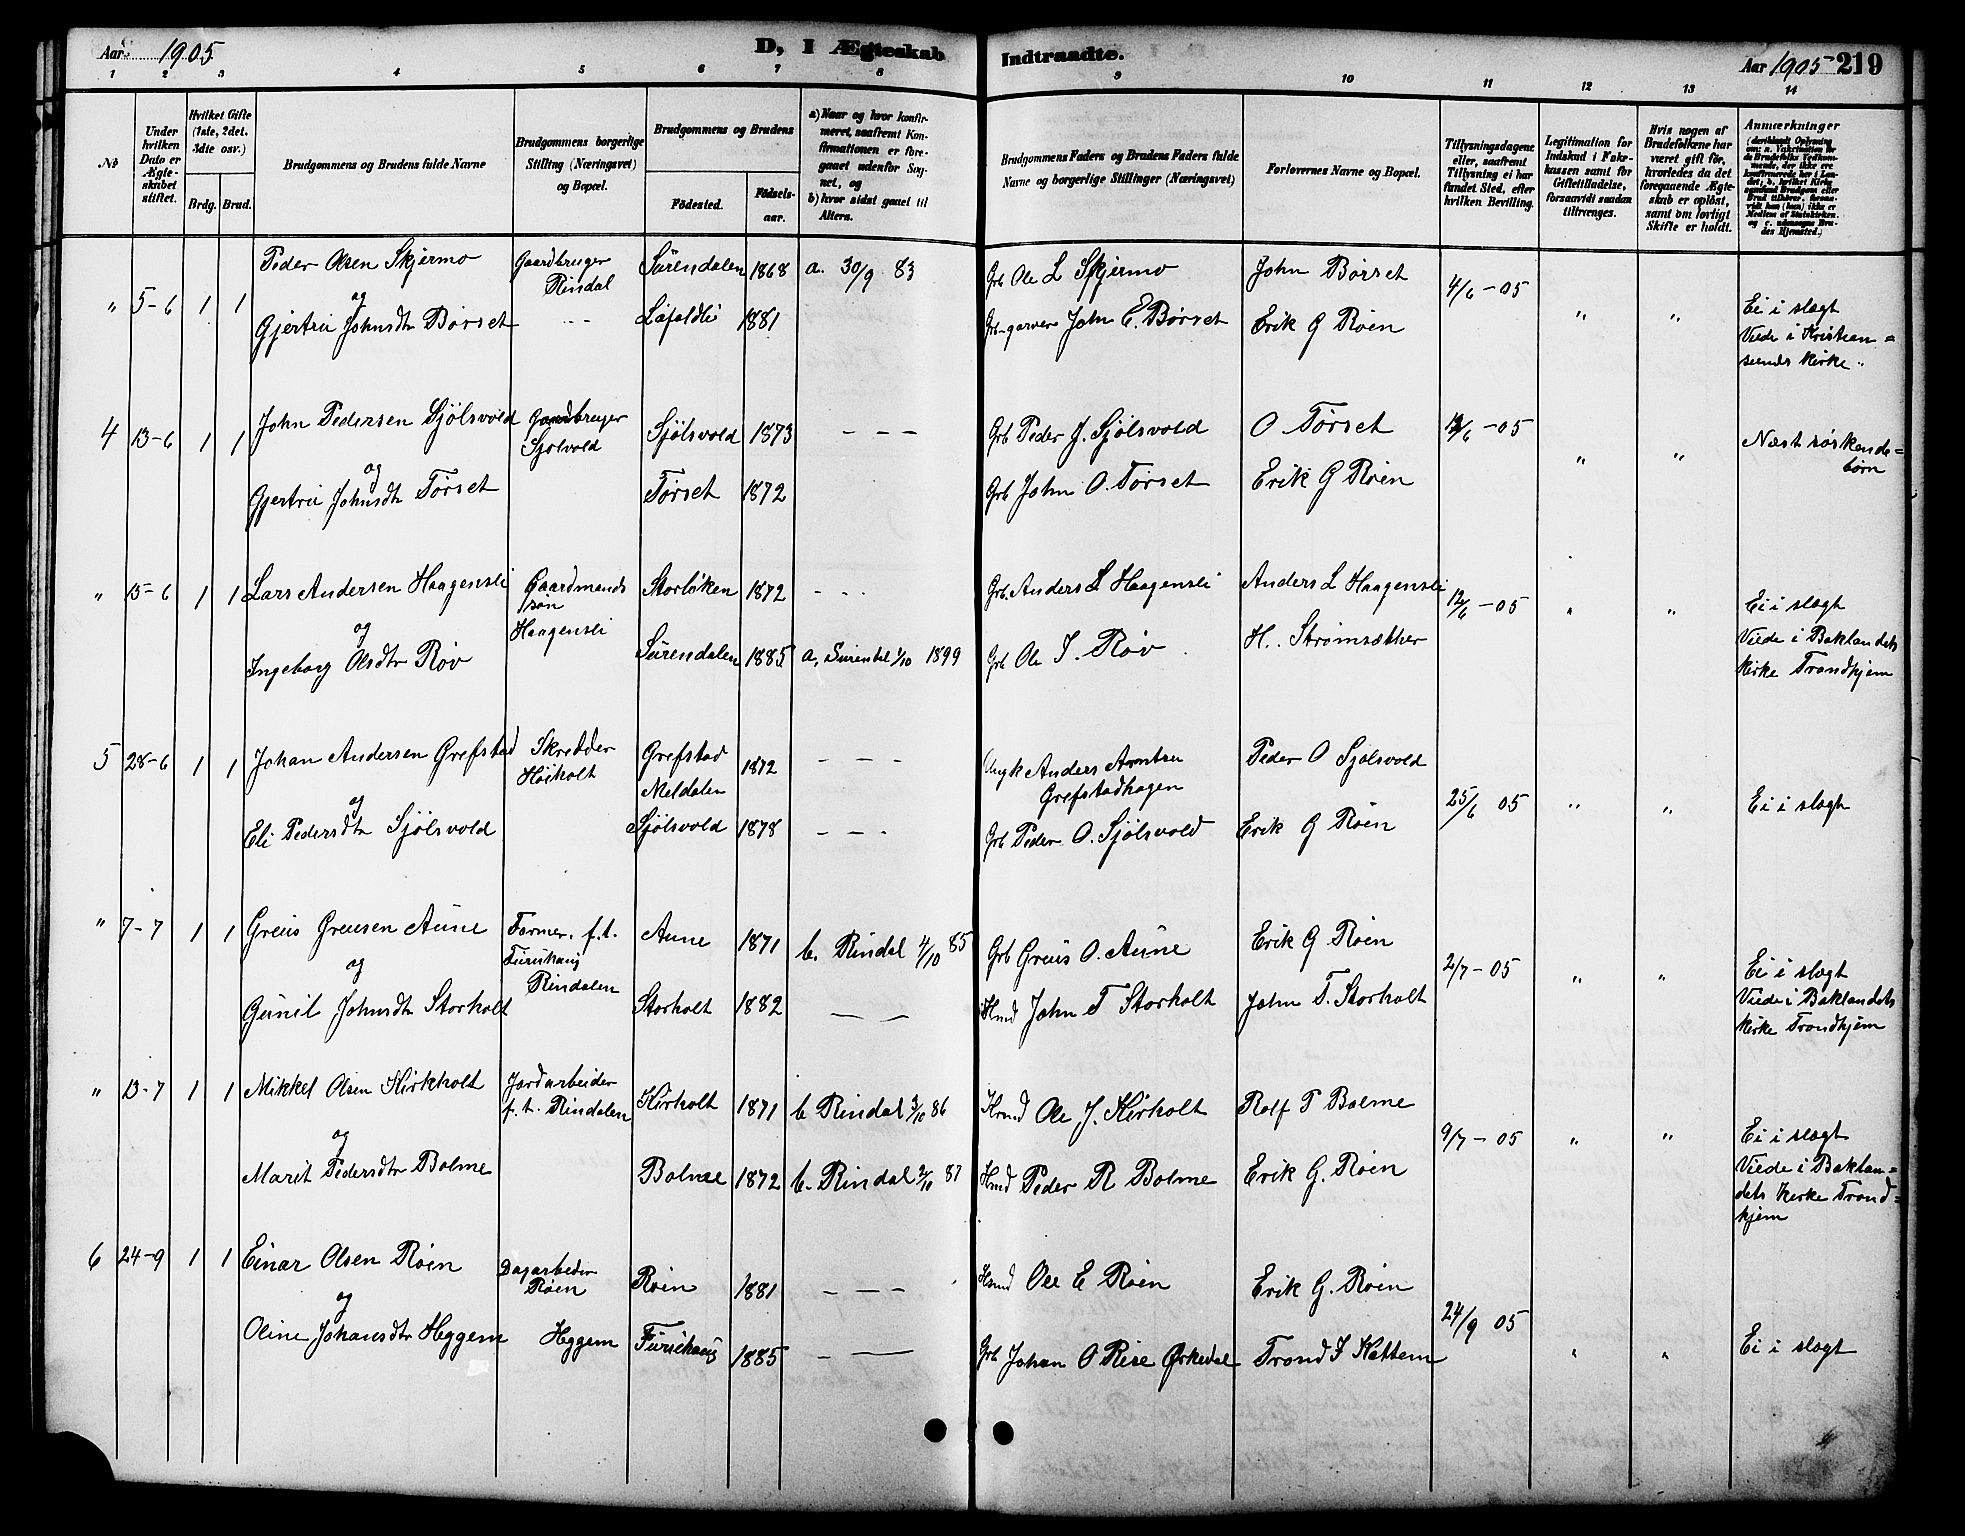 Aar 1905
D, I Ægteskab
Indtraadte.
Aar 1905 219
1 2 3 4 5 6 7 8 9 10 11 12 13 14
No
Under hvilken Dato er Ægteskabet stiftet.
Hvilket Gifte (1ste, 2det, 3die osv.)
Brdg. Brud.
Brudgommens og Brudens fulde Navne
Brudgommens borgerlige Stilling (Næringsvei) og Bopæl.
Brudgommens og Brudens
Födested.
Födselsaar.
a) Naar og hvor konfirmeret, saafremt Konfirmationen er foregaaet udenfor Sognet, og
b) hvor sidst gaaet til Alters.
Brudgommens Faders og Brudens Faders fulde Navne og borgerlige Stillinger (Næringsvei)
Forlovernes Navne og Bopæl.
Tillysningsdagene eller, saafremt Tillysning ei har fundet Sted, efter hvilken Bevilling.
Legitimation for Indskud i Enkekassen samt for Giftetilladelse, forsaavidt saadan tiltrænges.
Hvis nogen af Brudefolkene har været gift för, hvorledes da det foregaaende Ægteskab er oplöst, samt om lovligt Skifte er holdt.
Anmærkninger
" 5-6 1 1 Peder Olsen Skjermo Gaardbruger Rindal Surendalen 1868 a. 30/9 83 Grb Ole L Skjermo John Børset 4/6-05
og
Gjertru Johnsdtr Børset - - Lofaldli 1881 Grb-garver John E. Børset Erik G Røen " " Ei i slægt
Viede i Kristian=
sunds Kirke.
4 13-6 1 1 John Pedersen Sjølsvold Gaardbruger Sjølvold Sjølsvold 1873 - - - Grb Peder J. Sjølsvold O Tørset 12/6-05
og
Gjertru Johnsdtr Tørset Tørset 1872 Grb John O. Tørset Erik G Røen " " Næst søskende=
børn
" 15-6 1 1 Lars Andersen Haagensli Gaardmands søn Haagensli Storløken 1872 - - - Grb. Anders L Haagensli Anders L Haagensli 12/6-05
og
Ingeborg Olsdtr Røv Surendalen 1885 a, Surendal 1/10 1899 Grb Ole I. Røv H.. Strømsæther " " Ei i slægt
Viede i Baklandets
Kirke Trondhjem
5 28-6 1 1 Johan Andersen Grefstad Skrædder Høiholt Grefstad Meldalen 1872 - - - Anders Arntsen Grefstadhagen Peder O Sjølsvold
og
Eli Pedersdtr Sjølsvold Sjølsvold 1878 - - - Grb Peder O. Sjølsvold Erik G Røen 25/6 05 " " Ei i slægt
" 7-7 1 1 Greus Greusen Aune Farmer. f.t. Furuhaug Rindalen Aune 1871 b. Rindal 4/10 85 Grb Greus O. Aune Erik G Røen 2/7-05
og
Gunil Johnsdtr Storholt Storholt 1882 - - Hmd John T Storholt John T. Storholt " " Ei i slægt
Viede i Baklandets
Kirke Trondhjem
" 13-7 1 1 Mikkel Olsen Kirkholt Jordarbeider f. t. Rindalen Kirholt 1871 b Rindal 3/10 86 Hmd Ole J. Kirholt Rolf P Bolme
og
Marit Pedersdtr Bolme Bolme 1872 b. Rindal 2/10 87 Hmd Peder R Bolme Erik G. Røen 9/7-05 " " Ei i slægt
Viede i Baklan=
dets Kirke Trond=
hjem
6 24-9 1 1 Einar Olsen Røen Dagarbeider Røen Røen 1881 - - - Hmd Ole E Røen Erik G. Røen
og
Oline Johansdtr Heggem Heggem Furuhaug 1885 - - Grb Johan O Rise Ørkedal Trond I Kattem 24/9 05 " " Ei i slægt